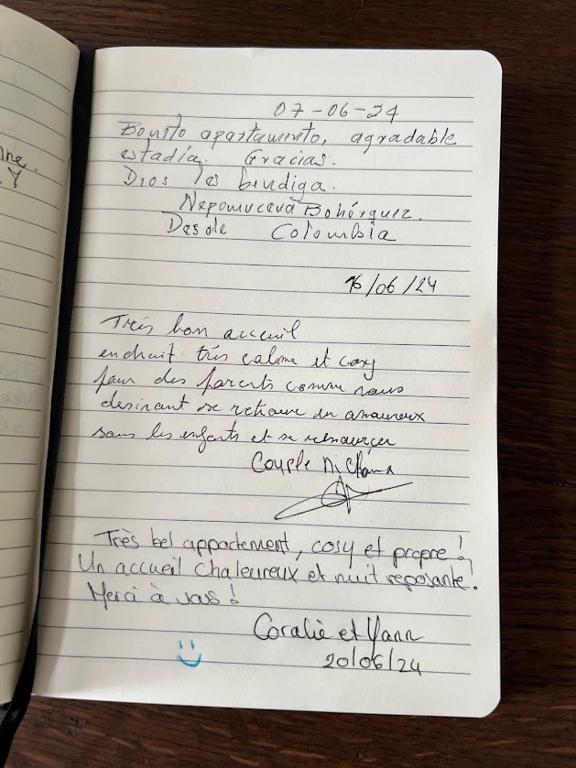 nne.
Y
07-06-24
Bonito apartamento, agradable
estadía. Gracias.
Dios les bendiga.
Nepomucena Bohórquez.
Desde Colombia
16/06/24
Très bon acceuil
endroit très calme et cosy
pour des parents comme nous
desirant se retrouver en amoureux
sans les enfants et se ressourcer
Couple
Très bel appartement, cosy et propre !
Un accueil chaleureux et nuit reposante.
Merci à vous !
Coralie et Yann
20/06/24